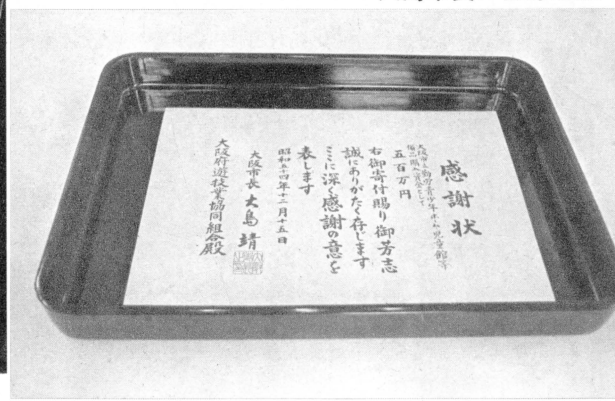 感謝状
五百万円
右御寄付賜り御芳志
誠にありがたく存じます
ここに深く感謝の意を
表します
昭和五十四年十二月十五日
大阪市長 大島靖
大阪府遊技業協同組合殿